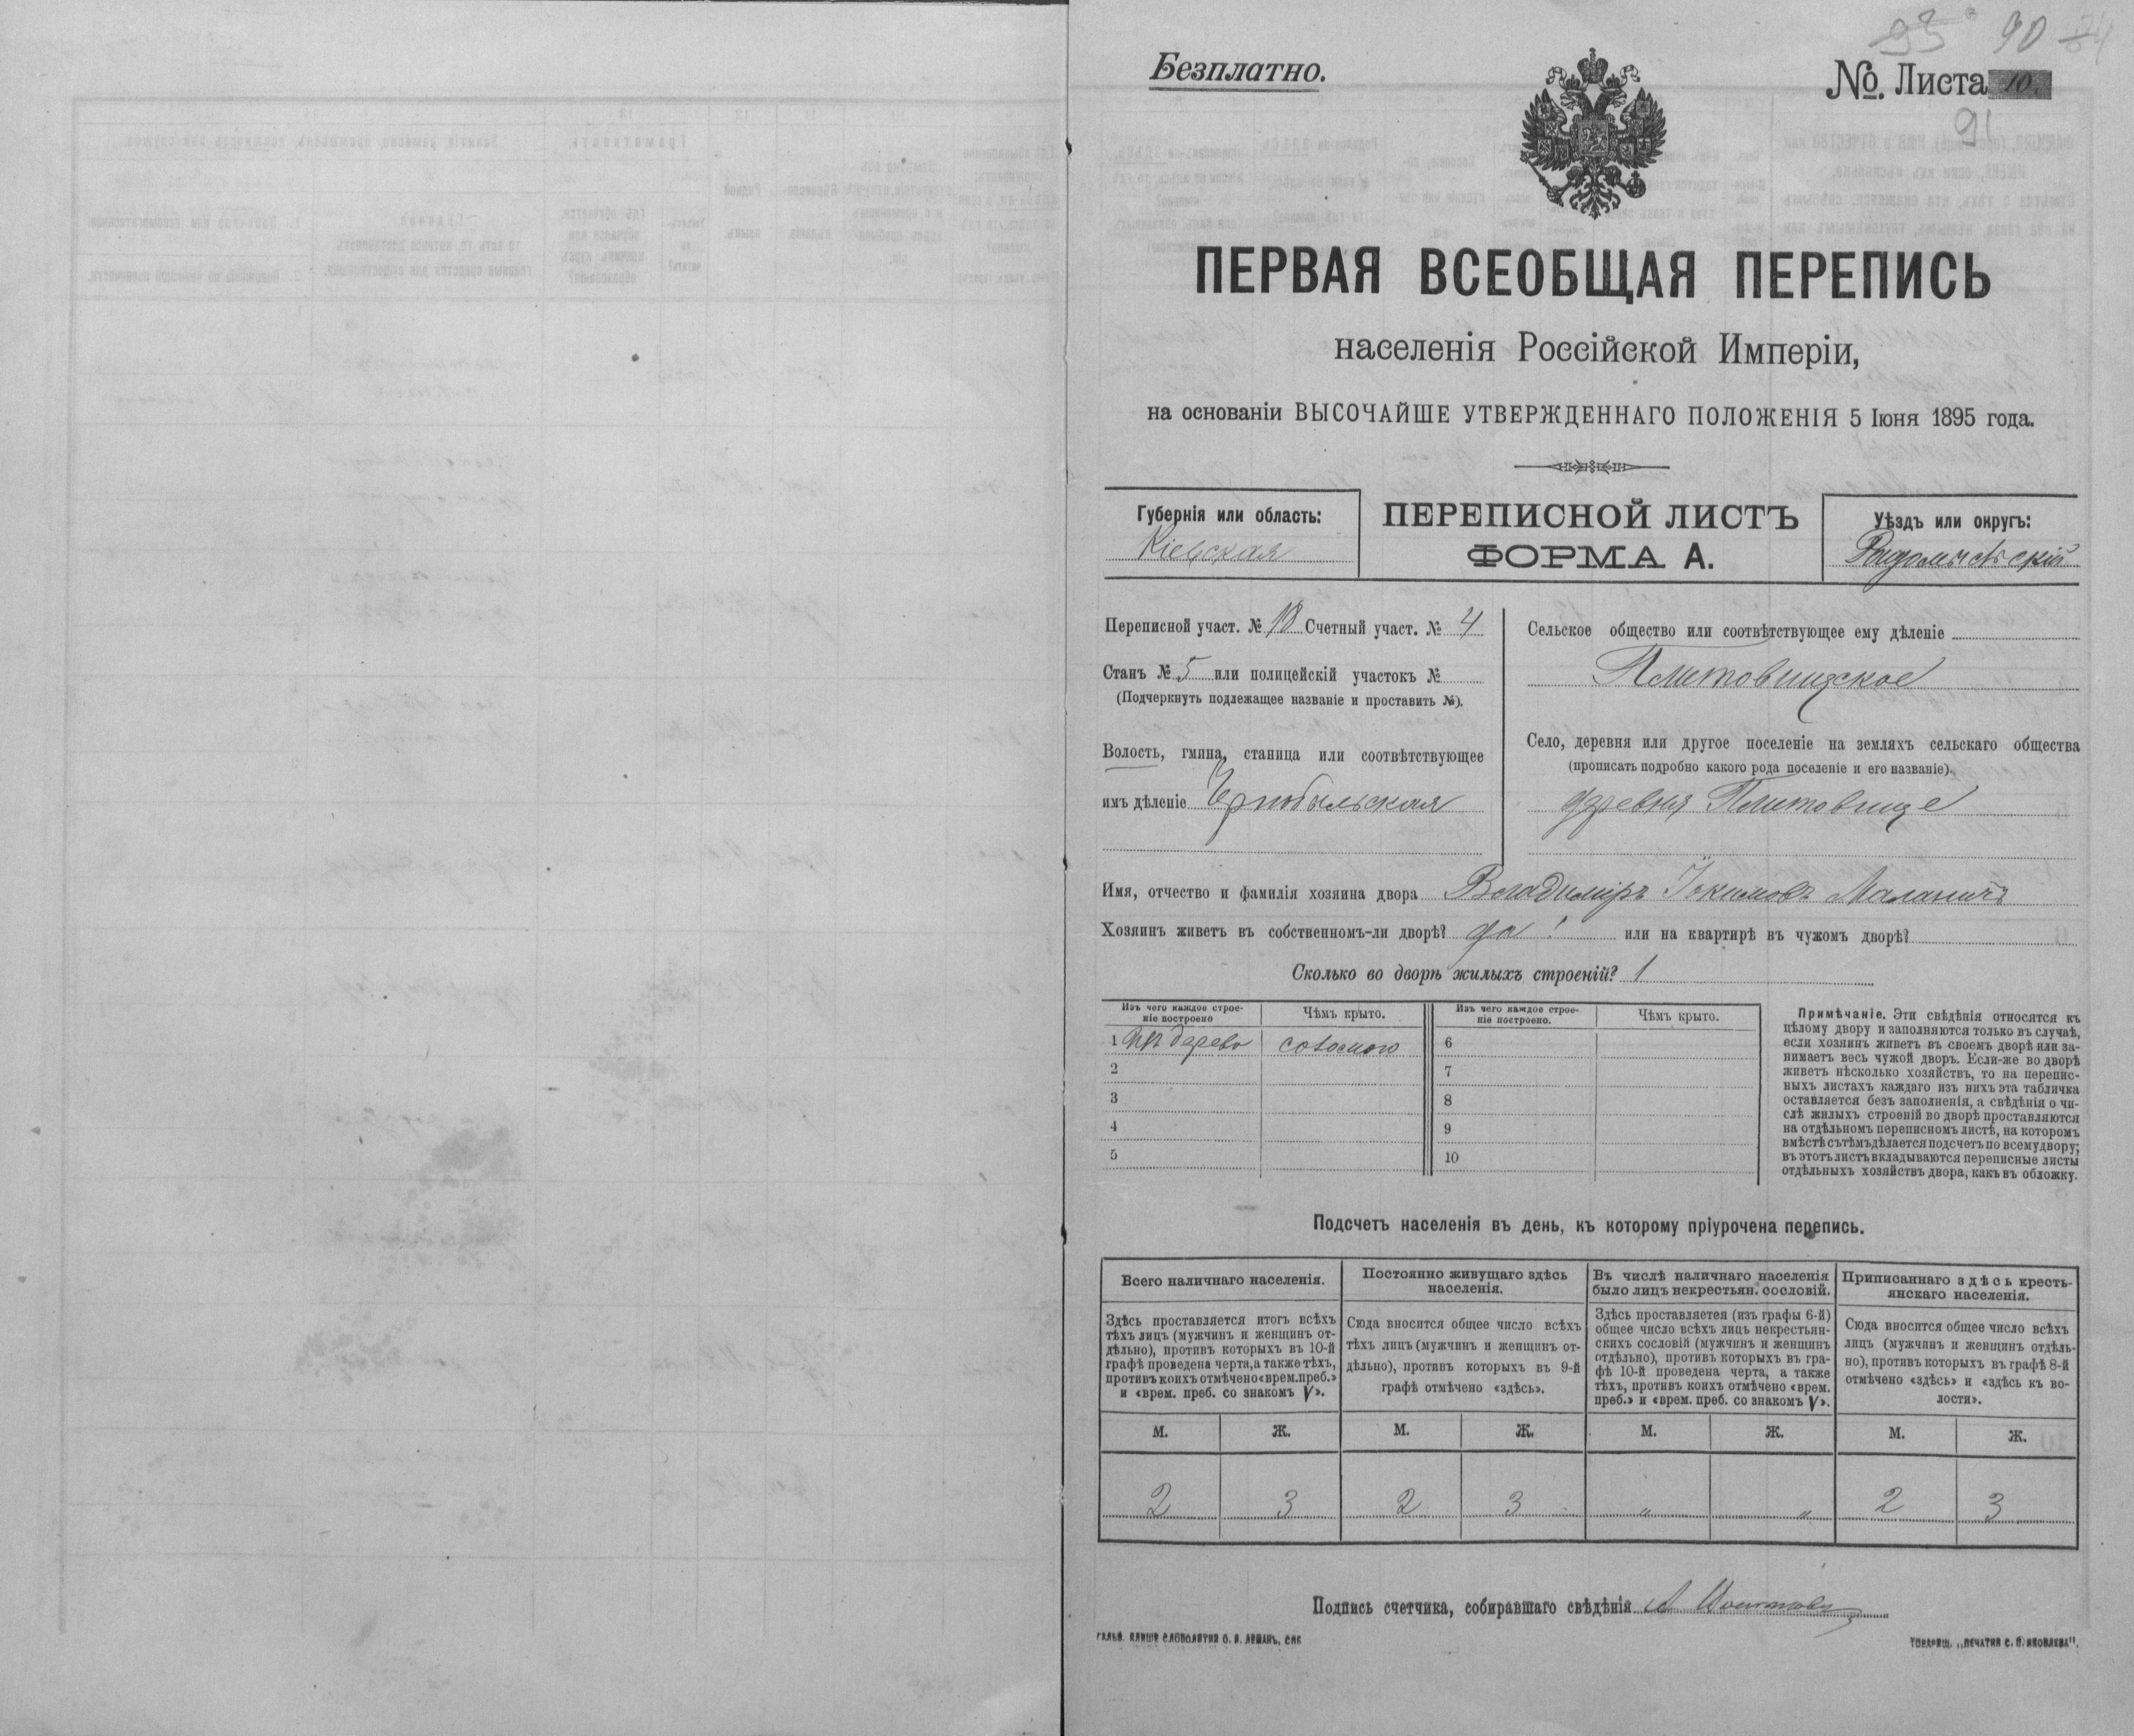 93 90 84
Безплатно.
№. Листа 10.
91
ПЕРВАЯ ВСЕОБЩАЯ ПЕРЕПИСЬ
населенія Россійской Имперіи,
на основаніи ВЫСОЧАЙШЕ УТВЕРЖДЕННАГО ПОЛОЖЕНІЯ 5 Іюня 1895 года.
Губернія или область:
Кіевская
ПЕРЕПИСНОЙ ЛИСТЪ
ФОРМА А.
Уѣздъ или округъ:
Радомысльскій
Переписной участ. № 18 Счетный участ. № 4
Станъ № 5 или полицейскій участокъ №
(Подчеркнуть подлежащее названіе и проставить №).
Волость, гмина, станица или соотвѣтствующее
имъ дѣленіе Чернобыльская
Сельское общество или соотвѣтствующее ему дѣленіе
Плитовищское
Село, деревня или другое поселеніе на земляхъ сельскаго общества
(прописать подробно какого рода поселеніе и его названіе).
деревня Плитовище
Имя, отчество и фамилія хозяина двора Владиміръ Іокимовъ Маланичъ
Хозяинъ живетъ въ собственномъ-ли дворѣ? да! или на квартирѣ въ чужомъ дворѣ?
Сколько во дворѣ жилыхъ строеній? 1
Изъ чего каждое строе-
ніе построено
Чѣмъ крыто.
Изъ чего каждое строе-
ніе построено.
Чѣмъ крыто.
1 дерево соломою 6
2 7
3 8
4 9
5 10
Примѣчаніе. Эти свѣдѣнія относятся къ
цѣлому двору и заполняются только въ случаѣ,
если хозяинъ живетъ въ своемъ дворѣ или за-
нимаетъ весь чужой дворъ. Если-же во дворѣ
живетъ нѣсколько хозяйствъ, то на перепис-
ныхъ листахъ каждаго изъ нихъ эта табличка
оставляется безъ заполненія, а свѣдѣнія о чи-
слѣ жилыхъ строеній во дворѣ проставляются
на отдѣльномъ переписномъ листѣ, на которомъ
вмѣстѣ съ тѣмъ дѣлается подсчетъ по всему двору;
въ этотъ листъ вкладываются переписные листы
отдѣльныхъ хозяйствъ двора, какъ въ обложку.
Подсчетъ населенія въ день, къ которому пріурочена перепись.
Всего наличнаго населенія.
Здѣсь проставляется итогъ всѣхъ
тѣхъ лицъ (мужчинъ и женщинъ от-
дѣльно), противъ которыхъ въ 10-й
графѣ проведена черта, а также тѣхъ,
противъ коихъ отмѣчено «врем. преб.»
и «врем. преб. со знакомъ V».
Постоянно живущаго здѣсь
населенія.
Сюда вносится общее число всѣхъ
тѣхъ лицъ (мужчинъ и женщинъ от-
дѣльно), противъ которыхъ въ 9-й
графѣ отмѣчено «здѣсь».
Въ числѣ наличнаго населенія
было лицъ некрестьян. сословій.
Здѣсь проставляется (изъ графы 6-й)
общее число всѣхъ лицъ некрестьян-
скихъ сословій (мужчинъ и женщинъ
отдѣльно), противъ которыхъ въ гра-
фѣ 10-й проведена черта, а также
тѣхъ, противъ коихъ отмѣчено «врем.
преб.» и «врем. преб. со знакомъ V».
Приписаннаго здѣсь кресть-
янскаго населенія.
Сюда вносится общее число всѣхъ
лицъ (мужчинъ и женщинъ отдѣль-
но), противъ которыхъ въ графѣ 8-й
отмѣчено «здѣсь» и «здѣсь къ во-
лости».
М. Ж. М. Ж. М. Ж. М. Ж.
2 3 2 3 „ „ 2 3
Подпись счетчика, собиравшаго свѣдѣнія
ГАЛЬВ. КЛИШЕ СЛОВОЛИТНИ О. И. ЛЕМАНЪ, СПБ
ТОВАРИЩ. „ПЕЧАТНЯ С. П. ЯКОВЛЕВА".